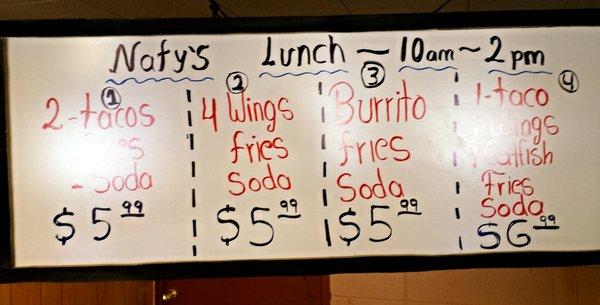 Nafy's Lunch — 10am ~ 2pm
1
2-tacos
- Soda
$5.99
2
4 Wings
fries
Soda
$5.99
3
Burrito
fries
Soda
$5.99
4
1-taco
Wings
Catfish
Fries
Soda
$6.99